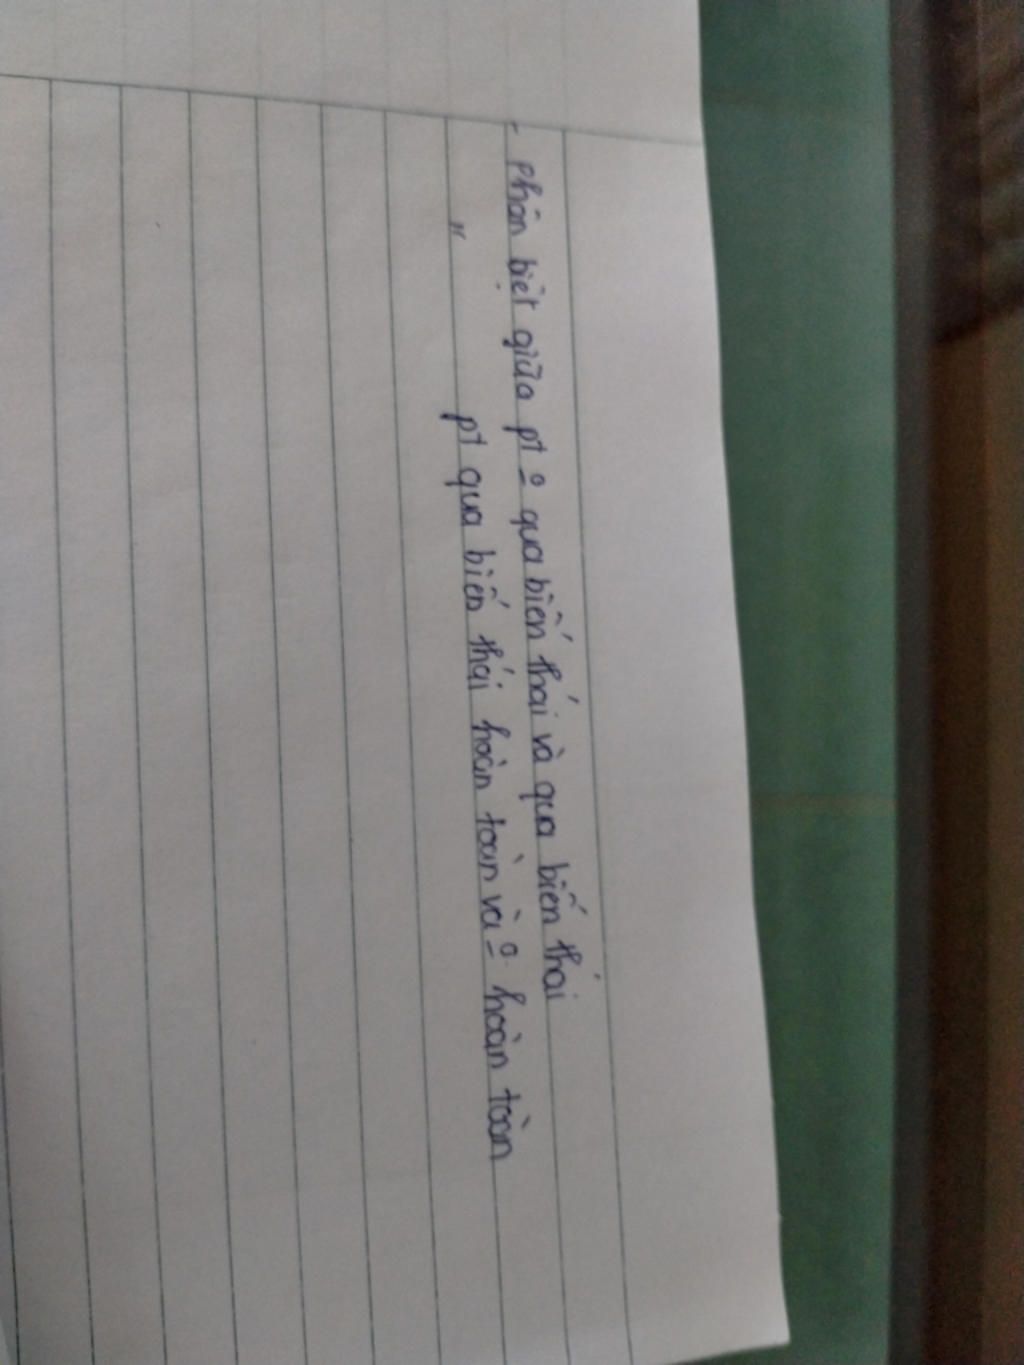 - Phân biệt giữa pt o qua biến thái và qua biến thái
" pt qua biến thái hoàn toàn và o hoàn toàn